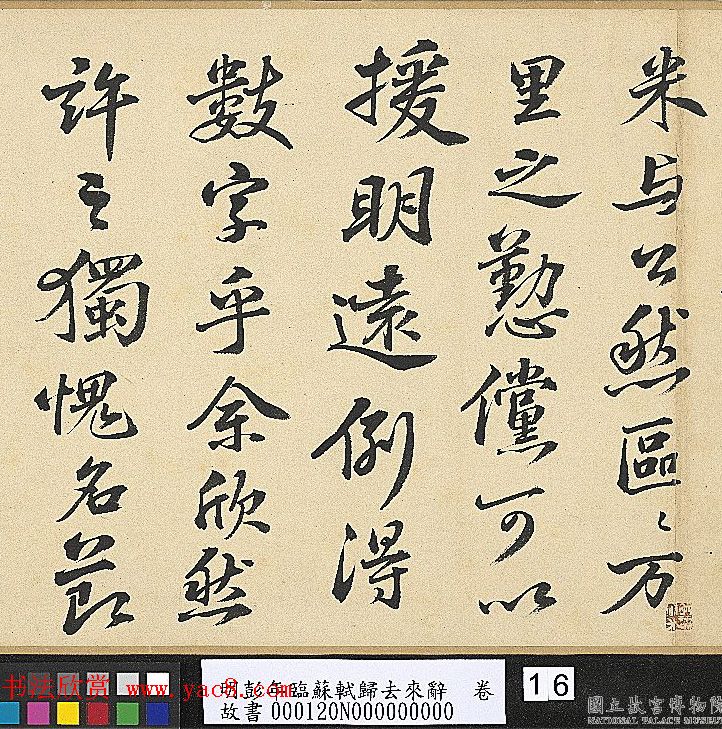 米与公然區〻万
里之懃儻可以
援明遠例得
數字乎余欣然
許之獨愧名節
书法欣赏 www.yac8.com
明彭年臨蘇軾歸去來辭 卷
故書 000120N000000000
16
國立故宮博物院
NATIONAL PALACE MUSEUM